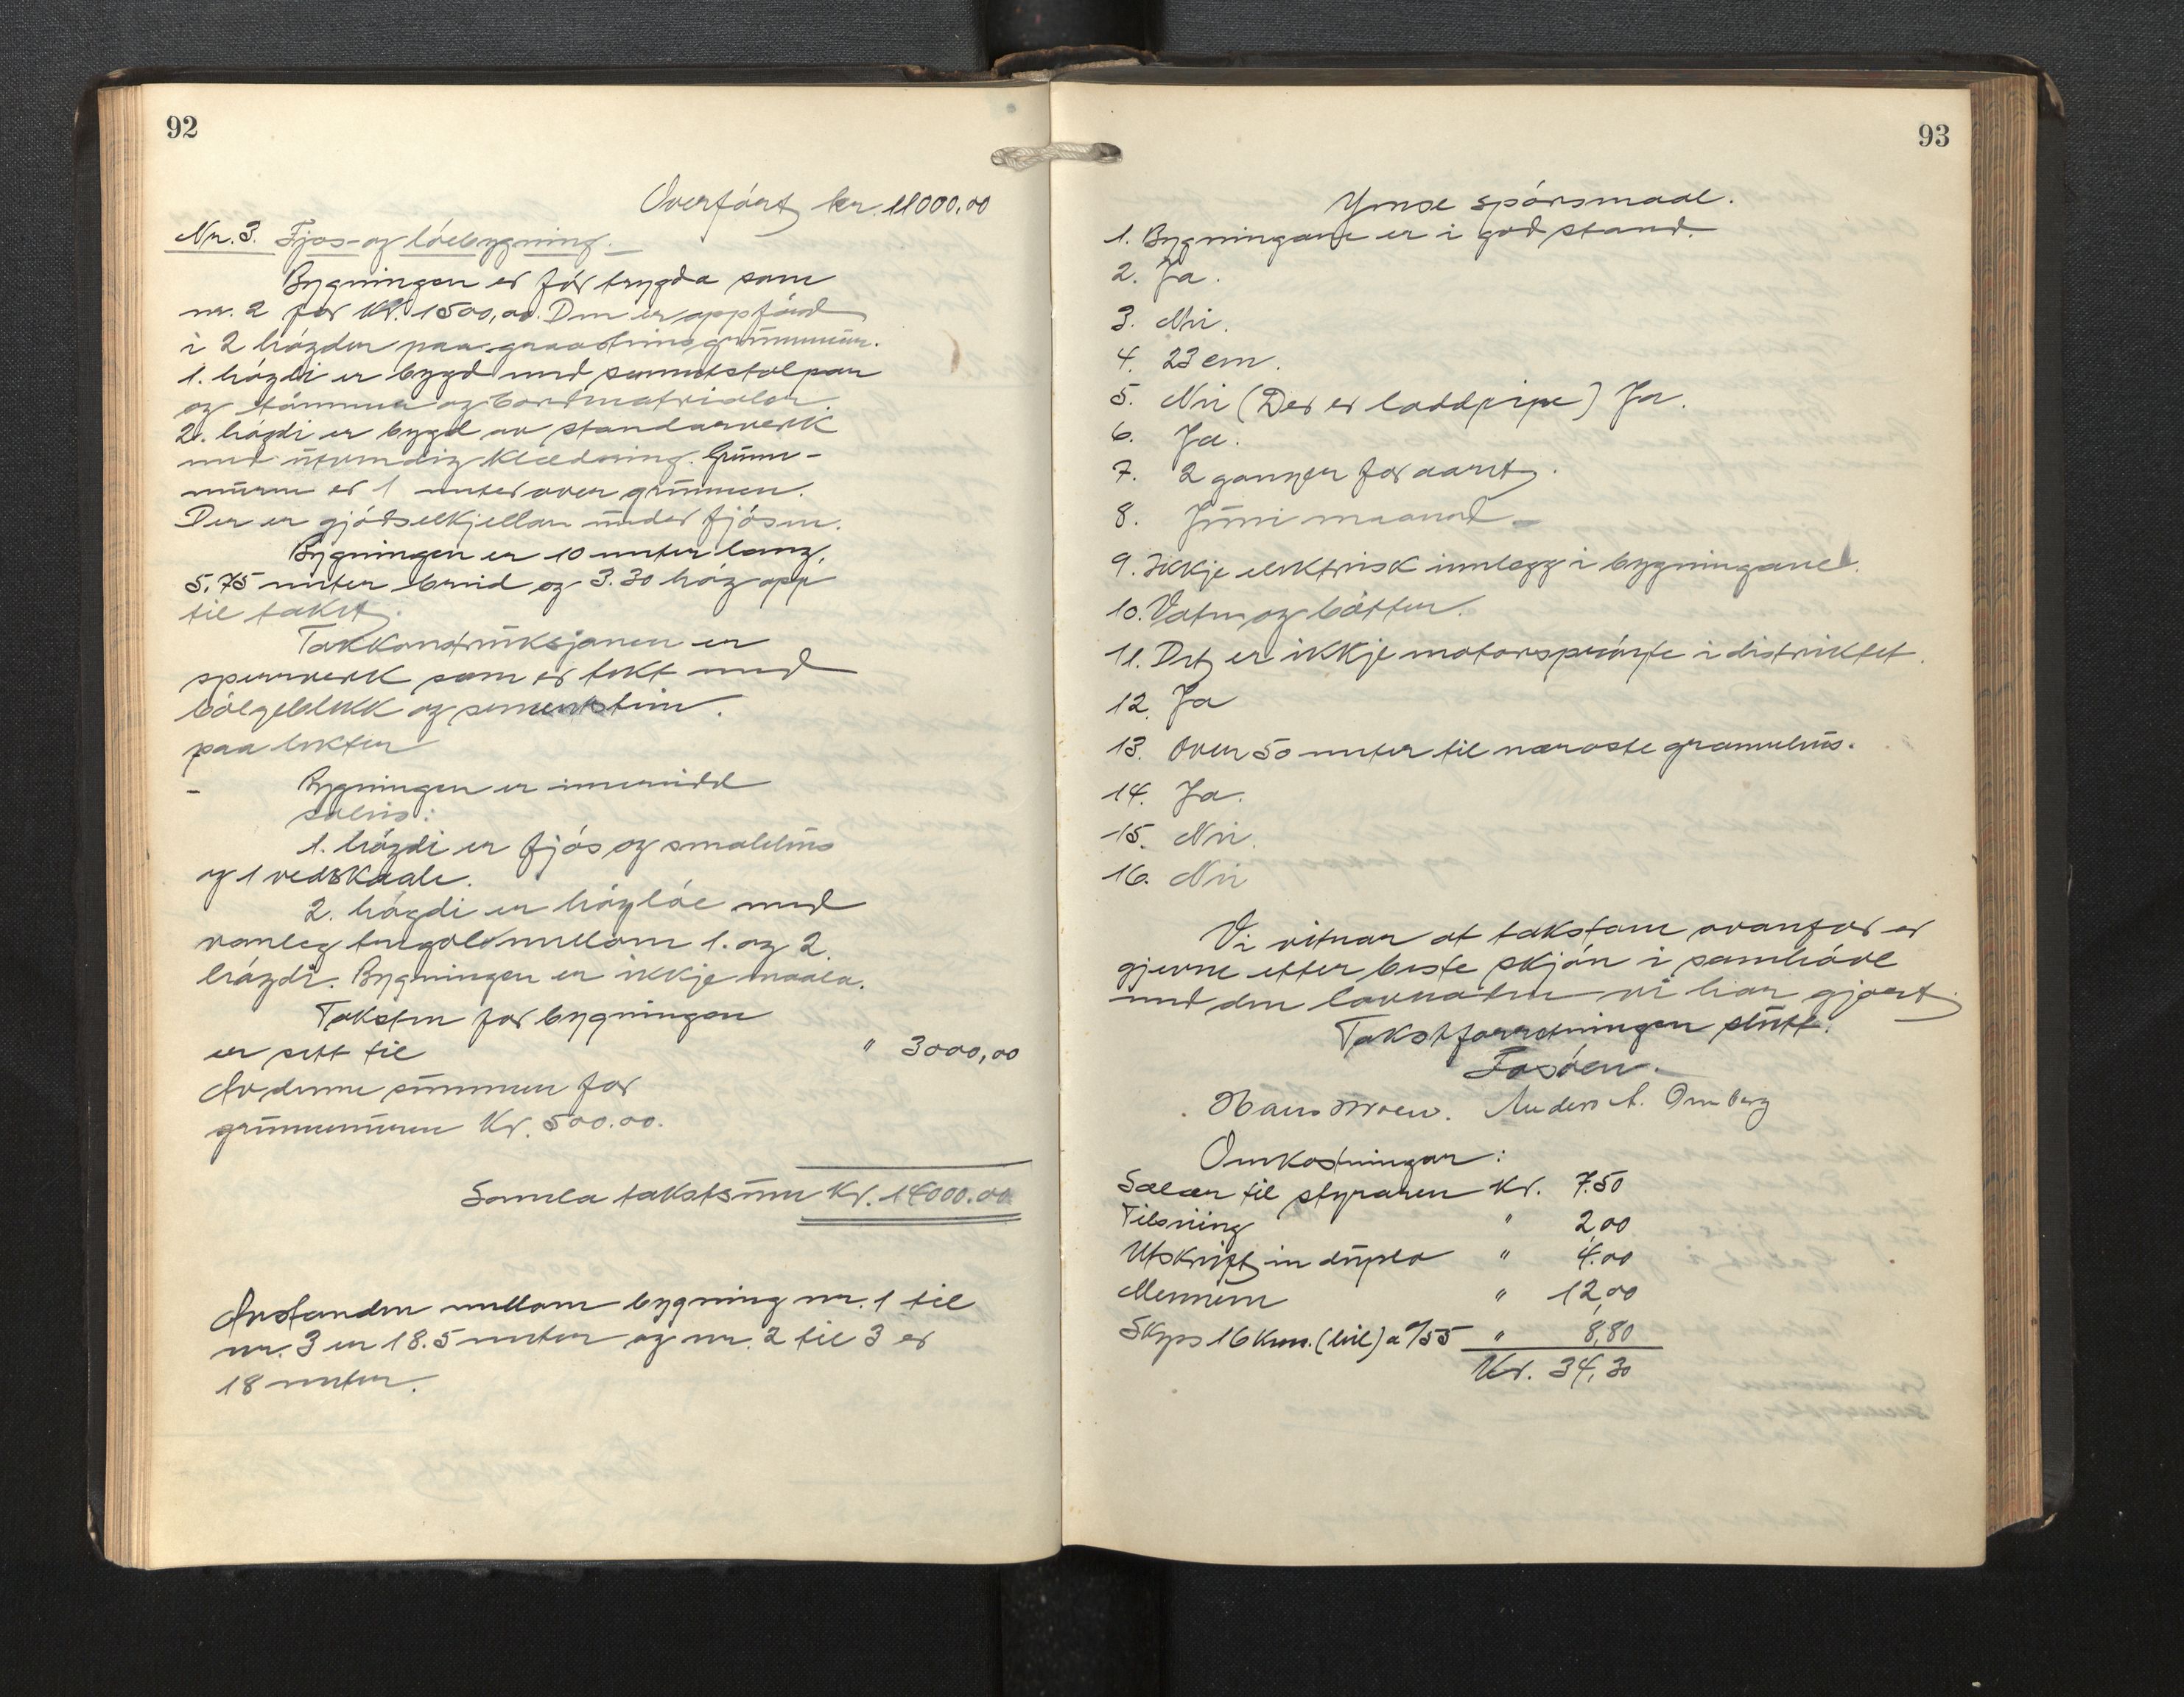 92
Overført kr. 11000,00
Nr. 3. Fjos- og løebygning.
Bygningen er før trygda som
nr. 2 for Kr. 1500,00. Den er oppførd
i 2 høgder paa graasteinsgrunnmur.
1. høgdi er bygd med sementstolpar
og tømmer og bordmatrialar.
2. høgdi er bygd av standarverk
med utvendig Klædning. Grunn-
muren er 1 meter over grunnen.
Der er gjødselkjellar under fjøsen.
Bygningen er 10 meter lang,
5,75 meter breid og 3.30 høg opp
til taket.
Takkonstruksjonen er
sperrverk som er tekt med
bølgeblekk og sementstein.
paa lekter
- Bygningen er innreidd
soleis:
1. høgdi er fjøs og smalehus
og 1 vedskaale.
2. høgdi er høyløe med
vanleg tregolv millom 1. og 2.
høgdi. Bygningen er ikkje maala.
Taksten for bygningen
er sett til " 3000,00
Av denne summen for
grunnmuren Kr. 500.00.
Samla takstsum Kr. 14000.00
Avstanden millom bygning nr. 1 til
nr. 3 er 18.5 meter og nr. 2 til 3 er
18 meter.
93
Ymse spørsmaal.
1. Bygningane er i god stand.
2. Ja.
3. Nei.
4. 23 cm.
5. Nei (Der er loddpipe) Ja.
6. Ja.
7. 2 ganger for aaret.
8. Juni maanad
9. Ikkje elektrisk innlegg i bygningane.
10. Vatn og bøtter.
11. Det er ikkje motorsprøyte i distriktet.
12. Ja
13. Over 50 meter til næraste grannehus.
14. Ja.
15. Nei.
16. Nei
Vi vitnar at takstane ovanfor er
gjevne etter beste skjøn i samhøve
med den lovnaden vi har gjort.
Takstforretningen slutt.
Fosøen.
Hans Moen. Anders A. Ornberg
Omkostningar:
Salær til styraren Kr. 7.50
Tilsning " 2,00
Utskrift in duplo " 4.00
Mennene " 12,00
Skyss 16 Km. (bil) a o/55 " 8,80
Kr. 34,30